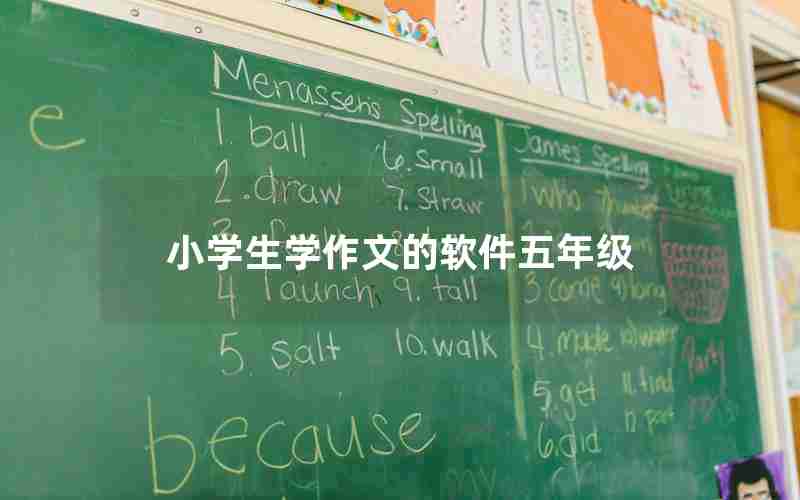 e
Menassen's Spelling
1. ball
2. draw
4 launch
5. salt
6. Small
7. Straw
9. tall
10. walk
because
my
James' Spelling
1 who
3. come
4. made
5. get
6. did
9) long
10) water
11. find
12 port
Party
小学生学作文的软件五年级